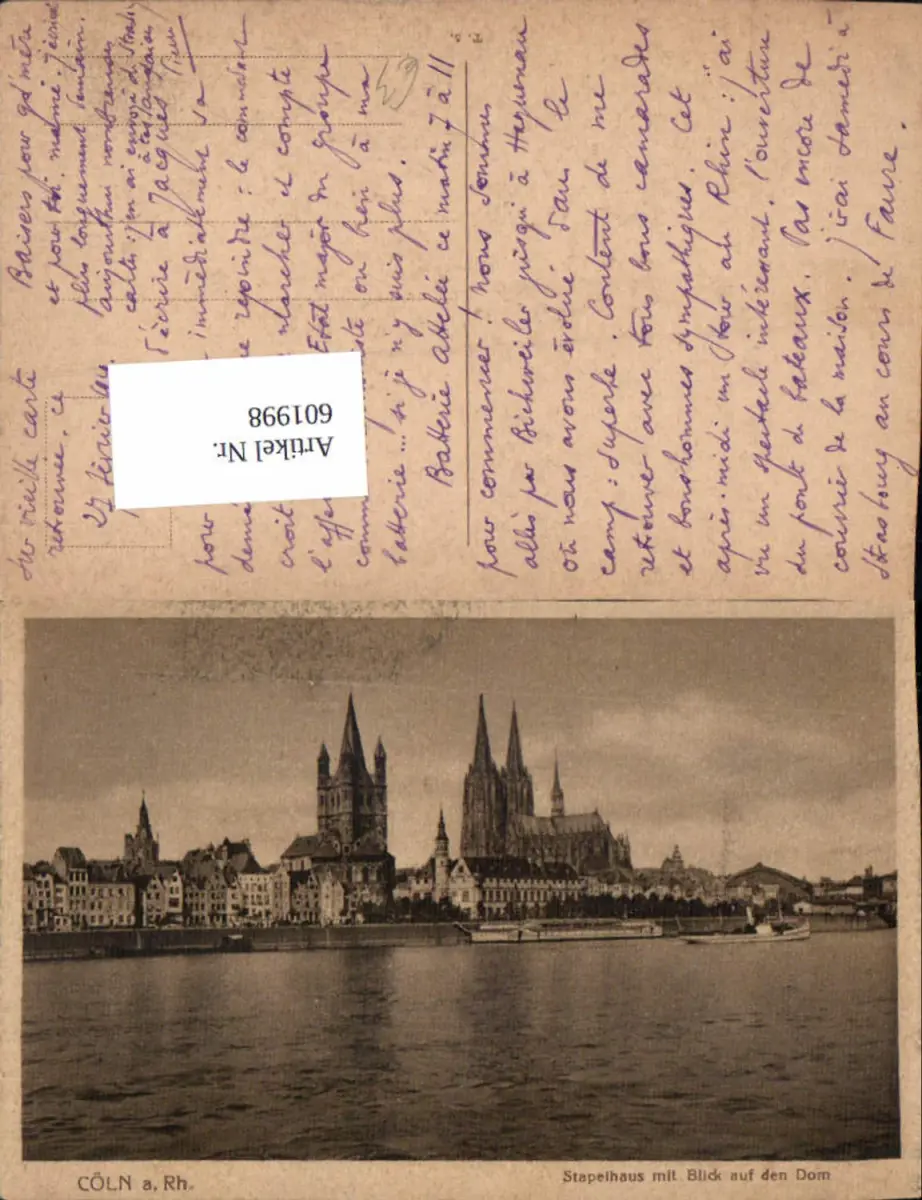 Baisers pour gd'mère
et pour toi, mémé. J'écrirai
plus longuement demain.
aujourd'hui nombreuses
cartes; j'en ai envoyé de Strasbg
à tes
27 février
d'écrire à Jacques
pour immédiatement sa
rejoindre : le commandant
croit marcher et compte
l'affec Etat major du groupe
comm ou bien à ma
batterie... si je n'y suis plus.
Batterie attelée ce matin 7 à 11
pour commencer ! nous sommes
allés par Bischweiler jusqu'à Haguenau
où nous avons évolué dans le
camp : superbe. Content de me
retrouver avec tous bons camarades
et bonshommes sympathiques. Cet
après-midi un tour au Rhin : j'ai
vu un spectacle intéressant. l'ouverture
du pont de bateaux. Pas encore de
courrier de la maison. J'irai samedi à
Strasbourg au cours de Faure.
Sur vieille carte
retrouvée. ce
Artikel Nr.
601998
CÖLN a. Rh.
Stapelhaus mit Blick auf den Dom